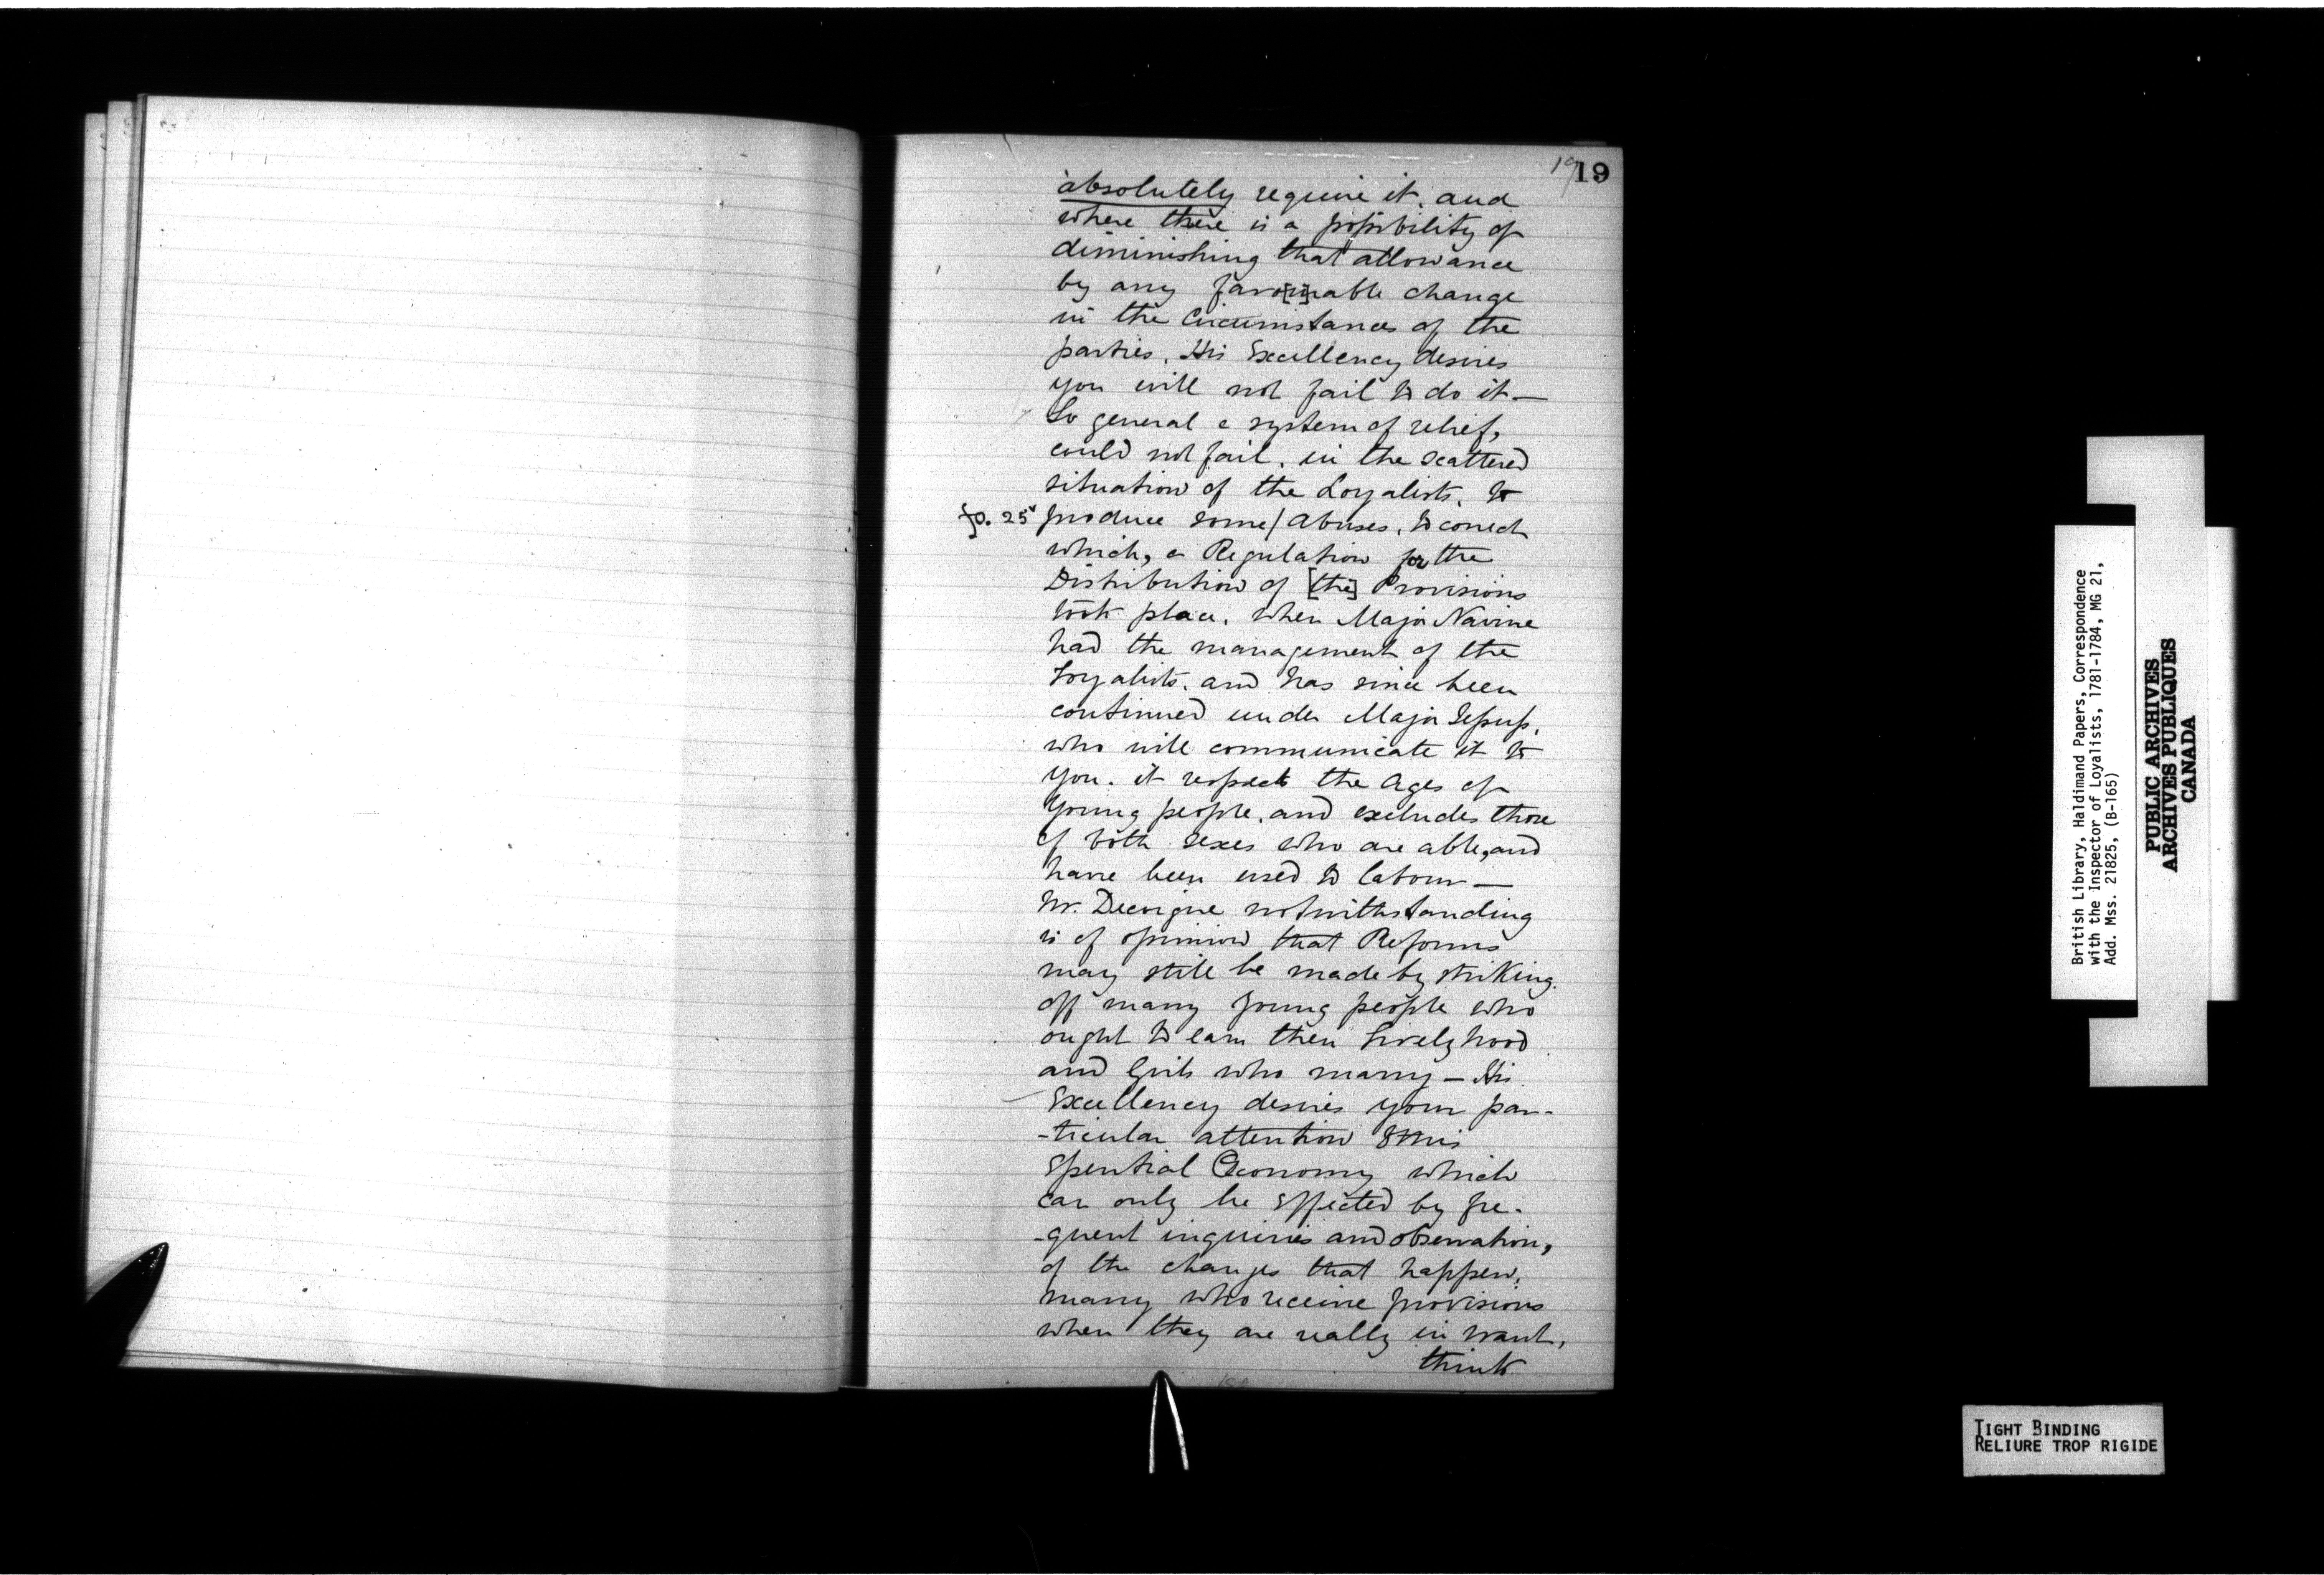 19
19
absolutely require it, and
where there is a possibility of
diminishing that allowance
by any favo[u]rable change
in the Circumstances of the
parties, His Excellency desires
you will not fail to do it—
So general a system of relief,
could not fail, in the scattered
situation of the Loyalists, to
fo. 25v produce some/Abuses, to correct
which, a Regulation for the
Distribution of [the] Provisions
took place, when Major Nairne
had the management of the
Loyalists, and has since been
continued under Major Jessup,
who will communicate it to
you. it respects the Ages of
Young people, and excludes those
of both sexes who are able, and
have been used to labour—
Mr. Decoigne notwithstanding
is of opinion that Reforms
may still be made by striking
off many Young people who
ought to earn their Livelyhood
and Girls who marry— His
Excellency desires your par-
-ticular attention to this
Essential Œconomy which
can only be Effected by fre-
-quent inquiries and observation,
of the changes that happen,
many who receive provisions
when they are really in want,
think
British Library, Haldimand Papers, Correspondence
with the Inspector of Loyalists, 1781-1784, MG 21,
Add. Mss. 21825, (B-165)
PUBLIC ARCHIVES
ARCHIVES PUBLIQUES
CANADA
TIGHT BINDING
RELIURE TROP RIGIDE